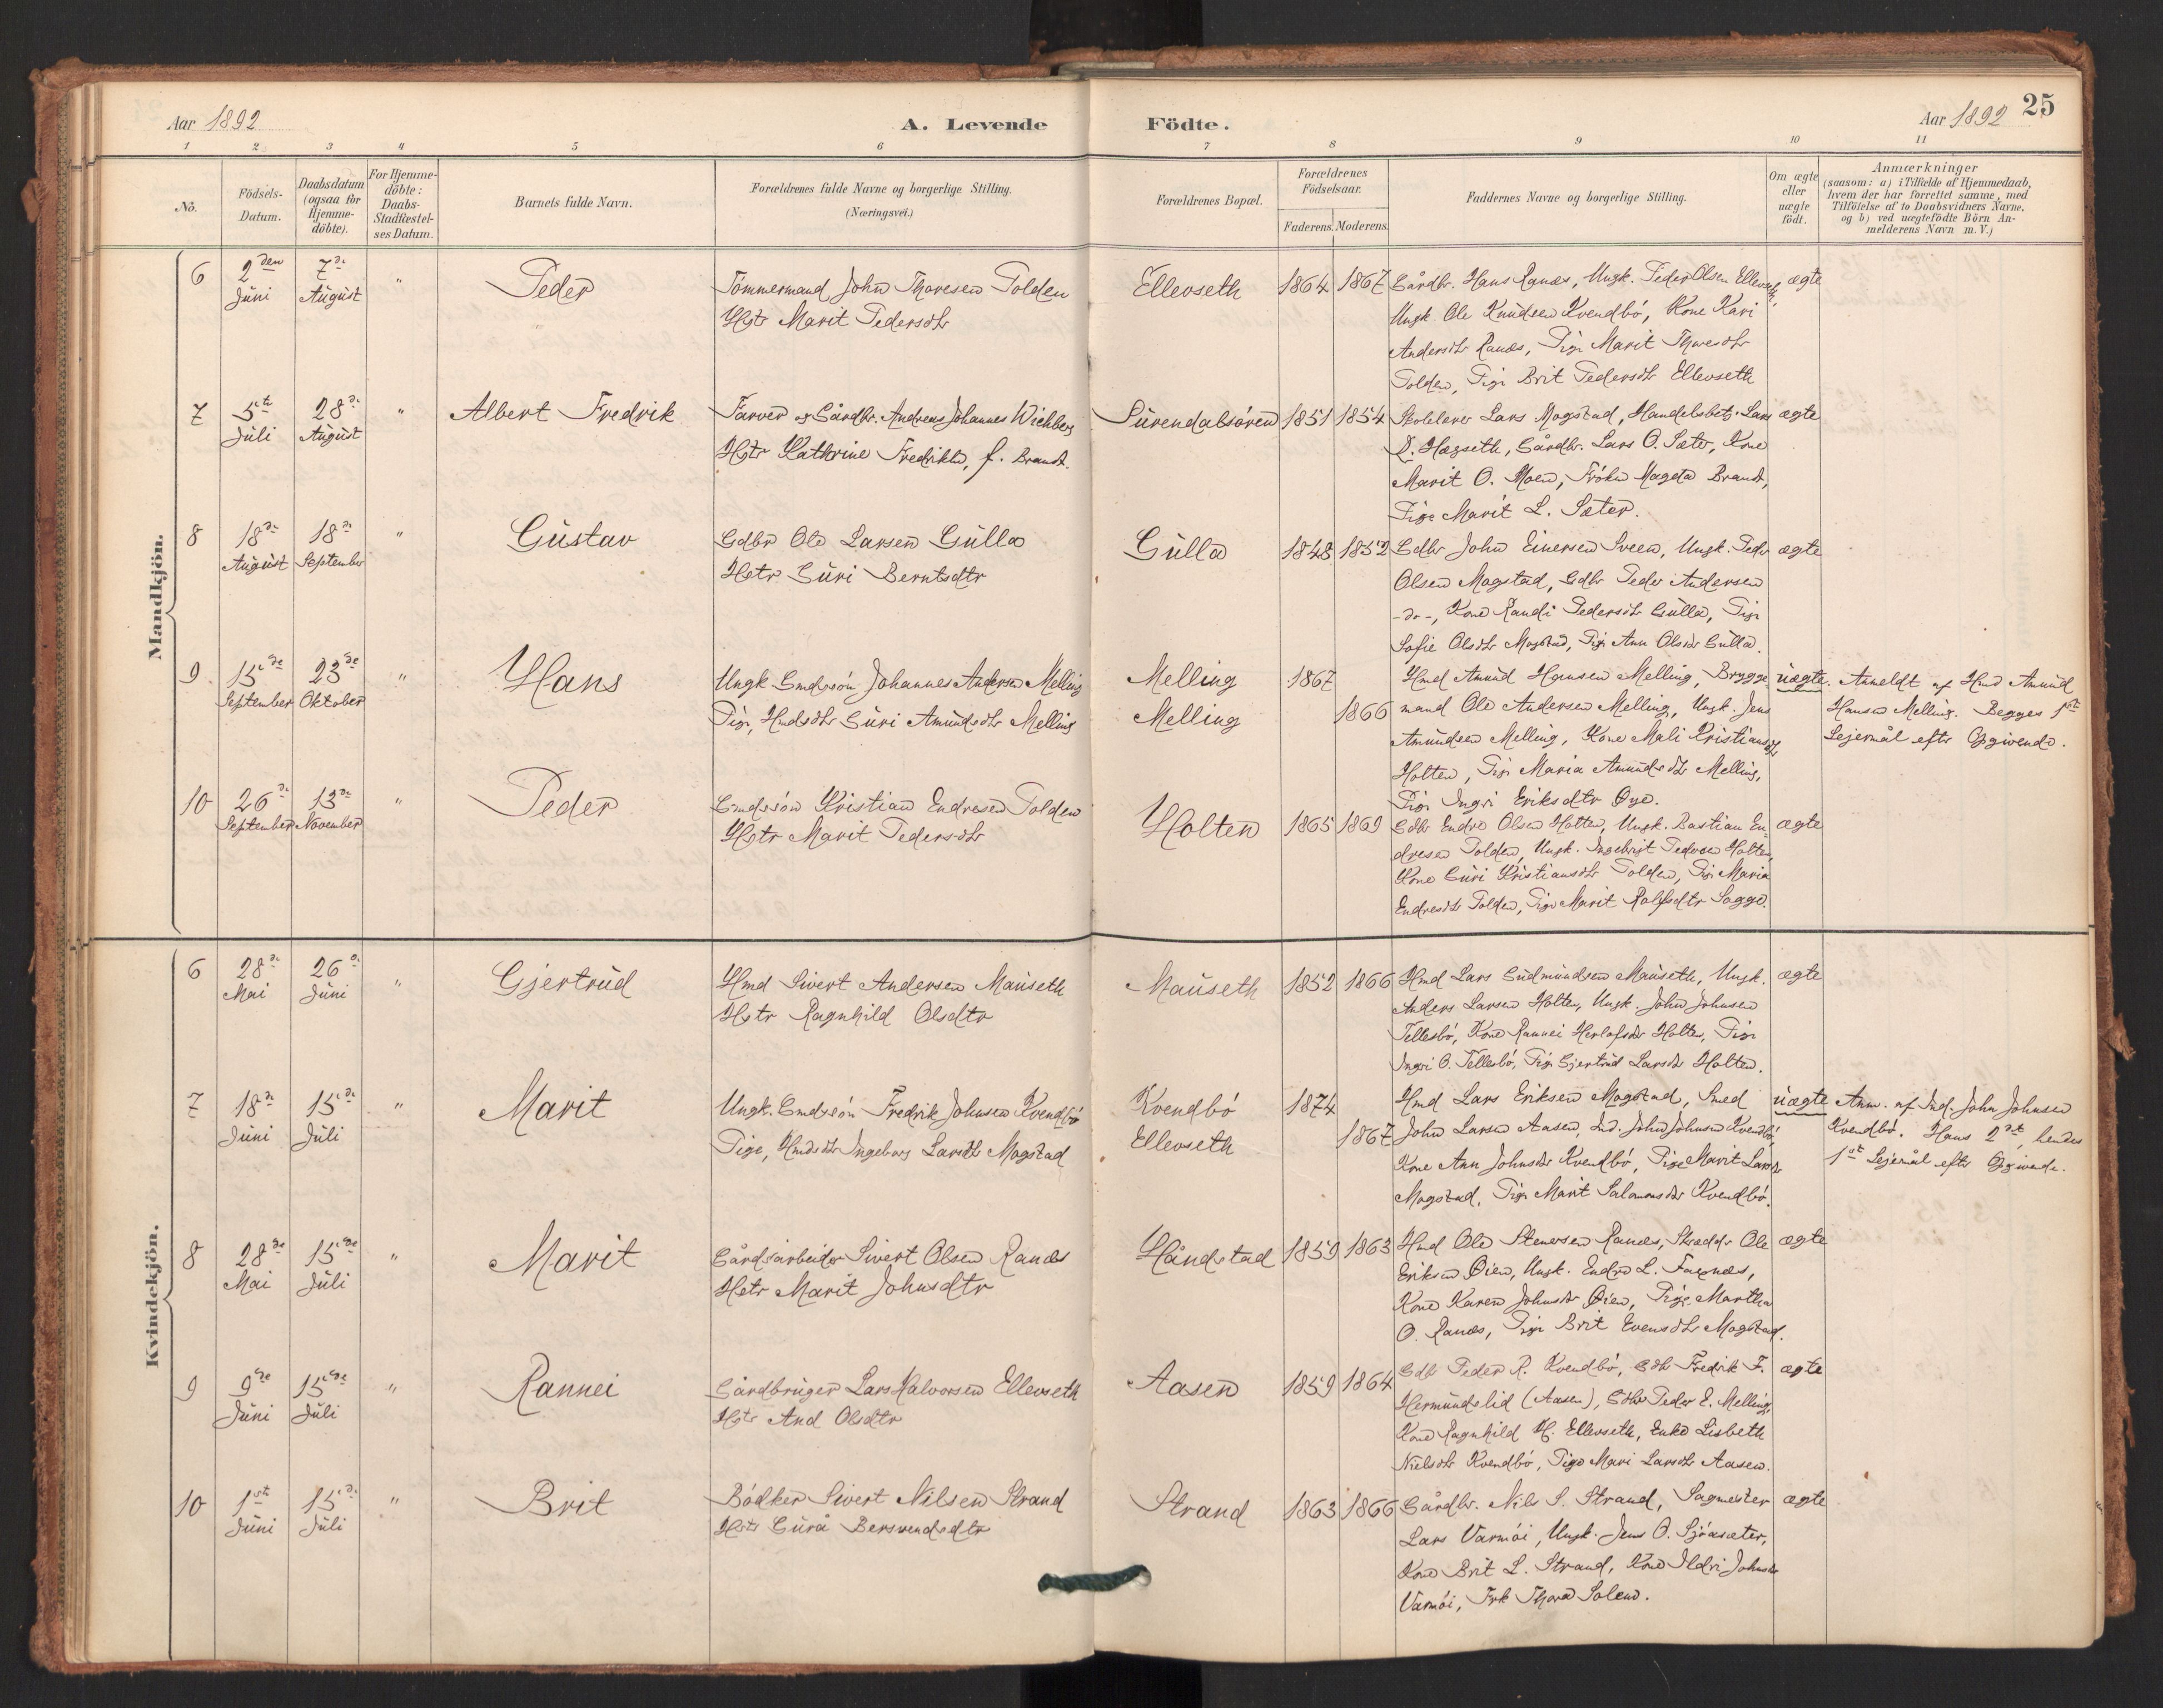 Aar 1892
A. Levende Födte.
Aar 1892 25
1 2 3 4 5 6 7 8 9 10 11
No.
Födsels-Datum.
Daabsdatum (ogsaa for Hjemme-döbte).
For Hjemme-döbte: Daabs-Stadfæstel-ses Datum.
Barnets fulde Navn.
Forældrenes fulde Navne og borgerlige Stilling.
(Næringsvei.)
Forældrenes Bopæl.
Forældrenes Födselsaar.
Faderens. Moderens.
Faddernes Navne og borgerlige Stilling.
Om ægte eller uægte födt.
Anmærkninger
(saasom: a) i Tilfælde af Hjemmedaab,
hvem der har forrettet samme, med
Tilföielse af to Daabsvidners Navne,
og b) ved uægtefödte Börn An-
melderens Navn m. V.)
Mandkjön.
6 2den Juni 7de August " Peder
Tömmermand John Thoresen Tolden
Hstr Marit Pedersdtr
Ellevseth 1864 1867
Gårdbr. Hans Ranæs, Ungk. Peder Olsen Ellevseth,
Ungk Ole Knudsen Kvendbö, Kone Kari
Andersdtr Ranæs, Pige Marit Thoresdtr
Tolden, Pige Brit Pedersdtr Ellevseth
ægte
7 5te Juli 28de August " Albert Fredrik
Farver og Gårdbr. Andreas Johannes Wichberg
Hstr Kathrine Fredrikke, f. Brandt.
Surendalsören 1851 1854
Skolelærer Lars Mogstad, Handelsbetj. Lars
Hægseth, Gårdbr. Lars O. Sæter, Kone
Marit O. Moen, Fröken Magda Brandt,
Pige Marit L. Sæter.
ægte
8 18de August 18de September " Gustav
Gdbr Ole Larsen Gulla
Hstr Guri Berntsdtr
Gulla 1848 1852
Gdbr John Einersen Sveen, Ungk. Peder
Olsen Mogstad, Gdbr Peder Andersen
-do-, Kone Randi Pedersdtr Gulla, Pige
Sofie Olsdtr Mogstad, Pige Ann Olsdtr Gulla.
ægte
9 15de September 23de Oktober " Hans
Ungk Gmdssön Johannes Andersen Melling
Pige, Hmdsdtr Guri Amundsdtr Melling
Melling 1867
Melling 1866
Hmd Amund Hansen Melling, Brygge-
mand Ole Andersen Melling, Ungk. Jens
Amundsen Melling, Kone Mali Kristiansdtr
Holten, Pige Maria Amundsdtr Melling,
Pige Ingri Eriksdtr Øye.
uægte.
Anmeldt af Hmd Amund
Hansen Melling. Begges 1ste
Lejermål efter Opgivende.
10 26de September 13de November " Peder
Gmdssön Kristian Endresen Tolden
Hstr Marit Pedersdtr
Holten 1865 1869
Gdbr Endre Olsen Holten, Ungk. Bastian En-
dresen Tolden, Ungk. Ingebrigt Pedersen Holten,
Kone Guri Kristiansdtr Tolden, Pige Maria
Endresdtr Tolden, Pige Marit Rolfsdtr Sogge.
ægte
Kvindekjön.
6 28de Mai 26de Juni " Gjertrud
Hmd Sivert Andersen Mauseth
Hstr Ragnhild Olsdtr
Mauseth 1852 1866
Hmd Lars Gudmundsen Mauseth, Ungk.
Anders Larsen Holten, Ungk. John Johnsen
Tellesbö, Kone Rannei Herlofsdtr Holten, Pige
Ingri O. Tellesbö, Pige Gjertrud Larsdtr Holten.
ægte
7 18de Juni 15de Juli " Marit
Ungk. Gmdssön Fredrik Johnsen Kvendbö
Pige, Hmdsdtr Ingeborg Larsdtr Mogstad
Kvendbö 1874
Ellevseth 1867
Hmd Lars Eriksen Mogstad, Smed
John Larsen Aasen, Ind. John Johnsen Kvendbö,
Kone Ann Johnsdtr Kvendbö, Pige Marit Larsdtr
Mogstad, Pige Marit Salamonsdtr Kvendbö.
uægte
Anm. af Ind. John Johnsen
Kvendbö. Hans 2det, hendes
1ste Lejermål efter Opgivende.
8 28de Mai 15de Juli " Marit
Gårdsarbeider Sivert Olsen Ranæs
Hstr Marit Johnsdtr
Håndstad 1859 1863
Hmd Ole Stenersen Ranæs, Skrædder Ole
Eriksen Øien, Ungk. Endre L.
Kone Karen Johnsdtr Øien, Pige Martha
O. Ranæs, Pige Brit Evensdtr Mogstad.
ægte
9 9de Juni 15de Juli " Rannei
Gårdbruger Lars Halvorsen Ellevseth
Hstr And Olsdtr
Aasen 1859 1864
Gdbr Peder R. Kvendbö, Gdbr Fredrik F.
Hermundslid (Aasen), Gdbr Peder E. Melling,
Kone Ragnhild H. Ellevseth, Enke Lisbeth
Nielsdtr Kvendbö, Pige Mari Larsdtr Aasen.
ægte
10 1ste Juni 15de Juli " Brit
Bödker Sivert Nilsen Strand
Hstr Gurå Bersvendsdtr
Strand 1863 1866
Gårdbr. Nils S. Strand, Sagmester
Lars Varmöi, Ungk. Jens O. Sjöasæter,
Kone Brit L. Strand, Kone Ildri Johnsdtr
Varmöi, Frk Thora Solem.
ægte